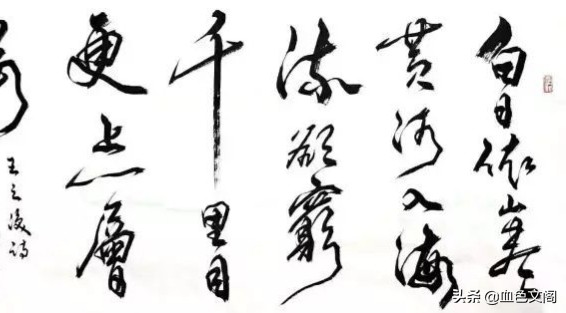 白日依山盡
黄河入海
流欲窮
千里目
更上一層
王之渙詩
头条 @血色文阁